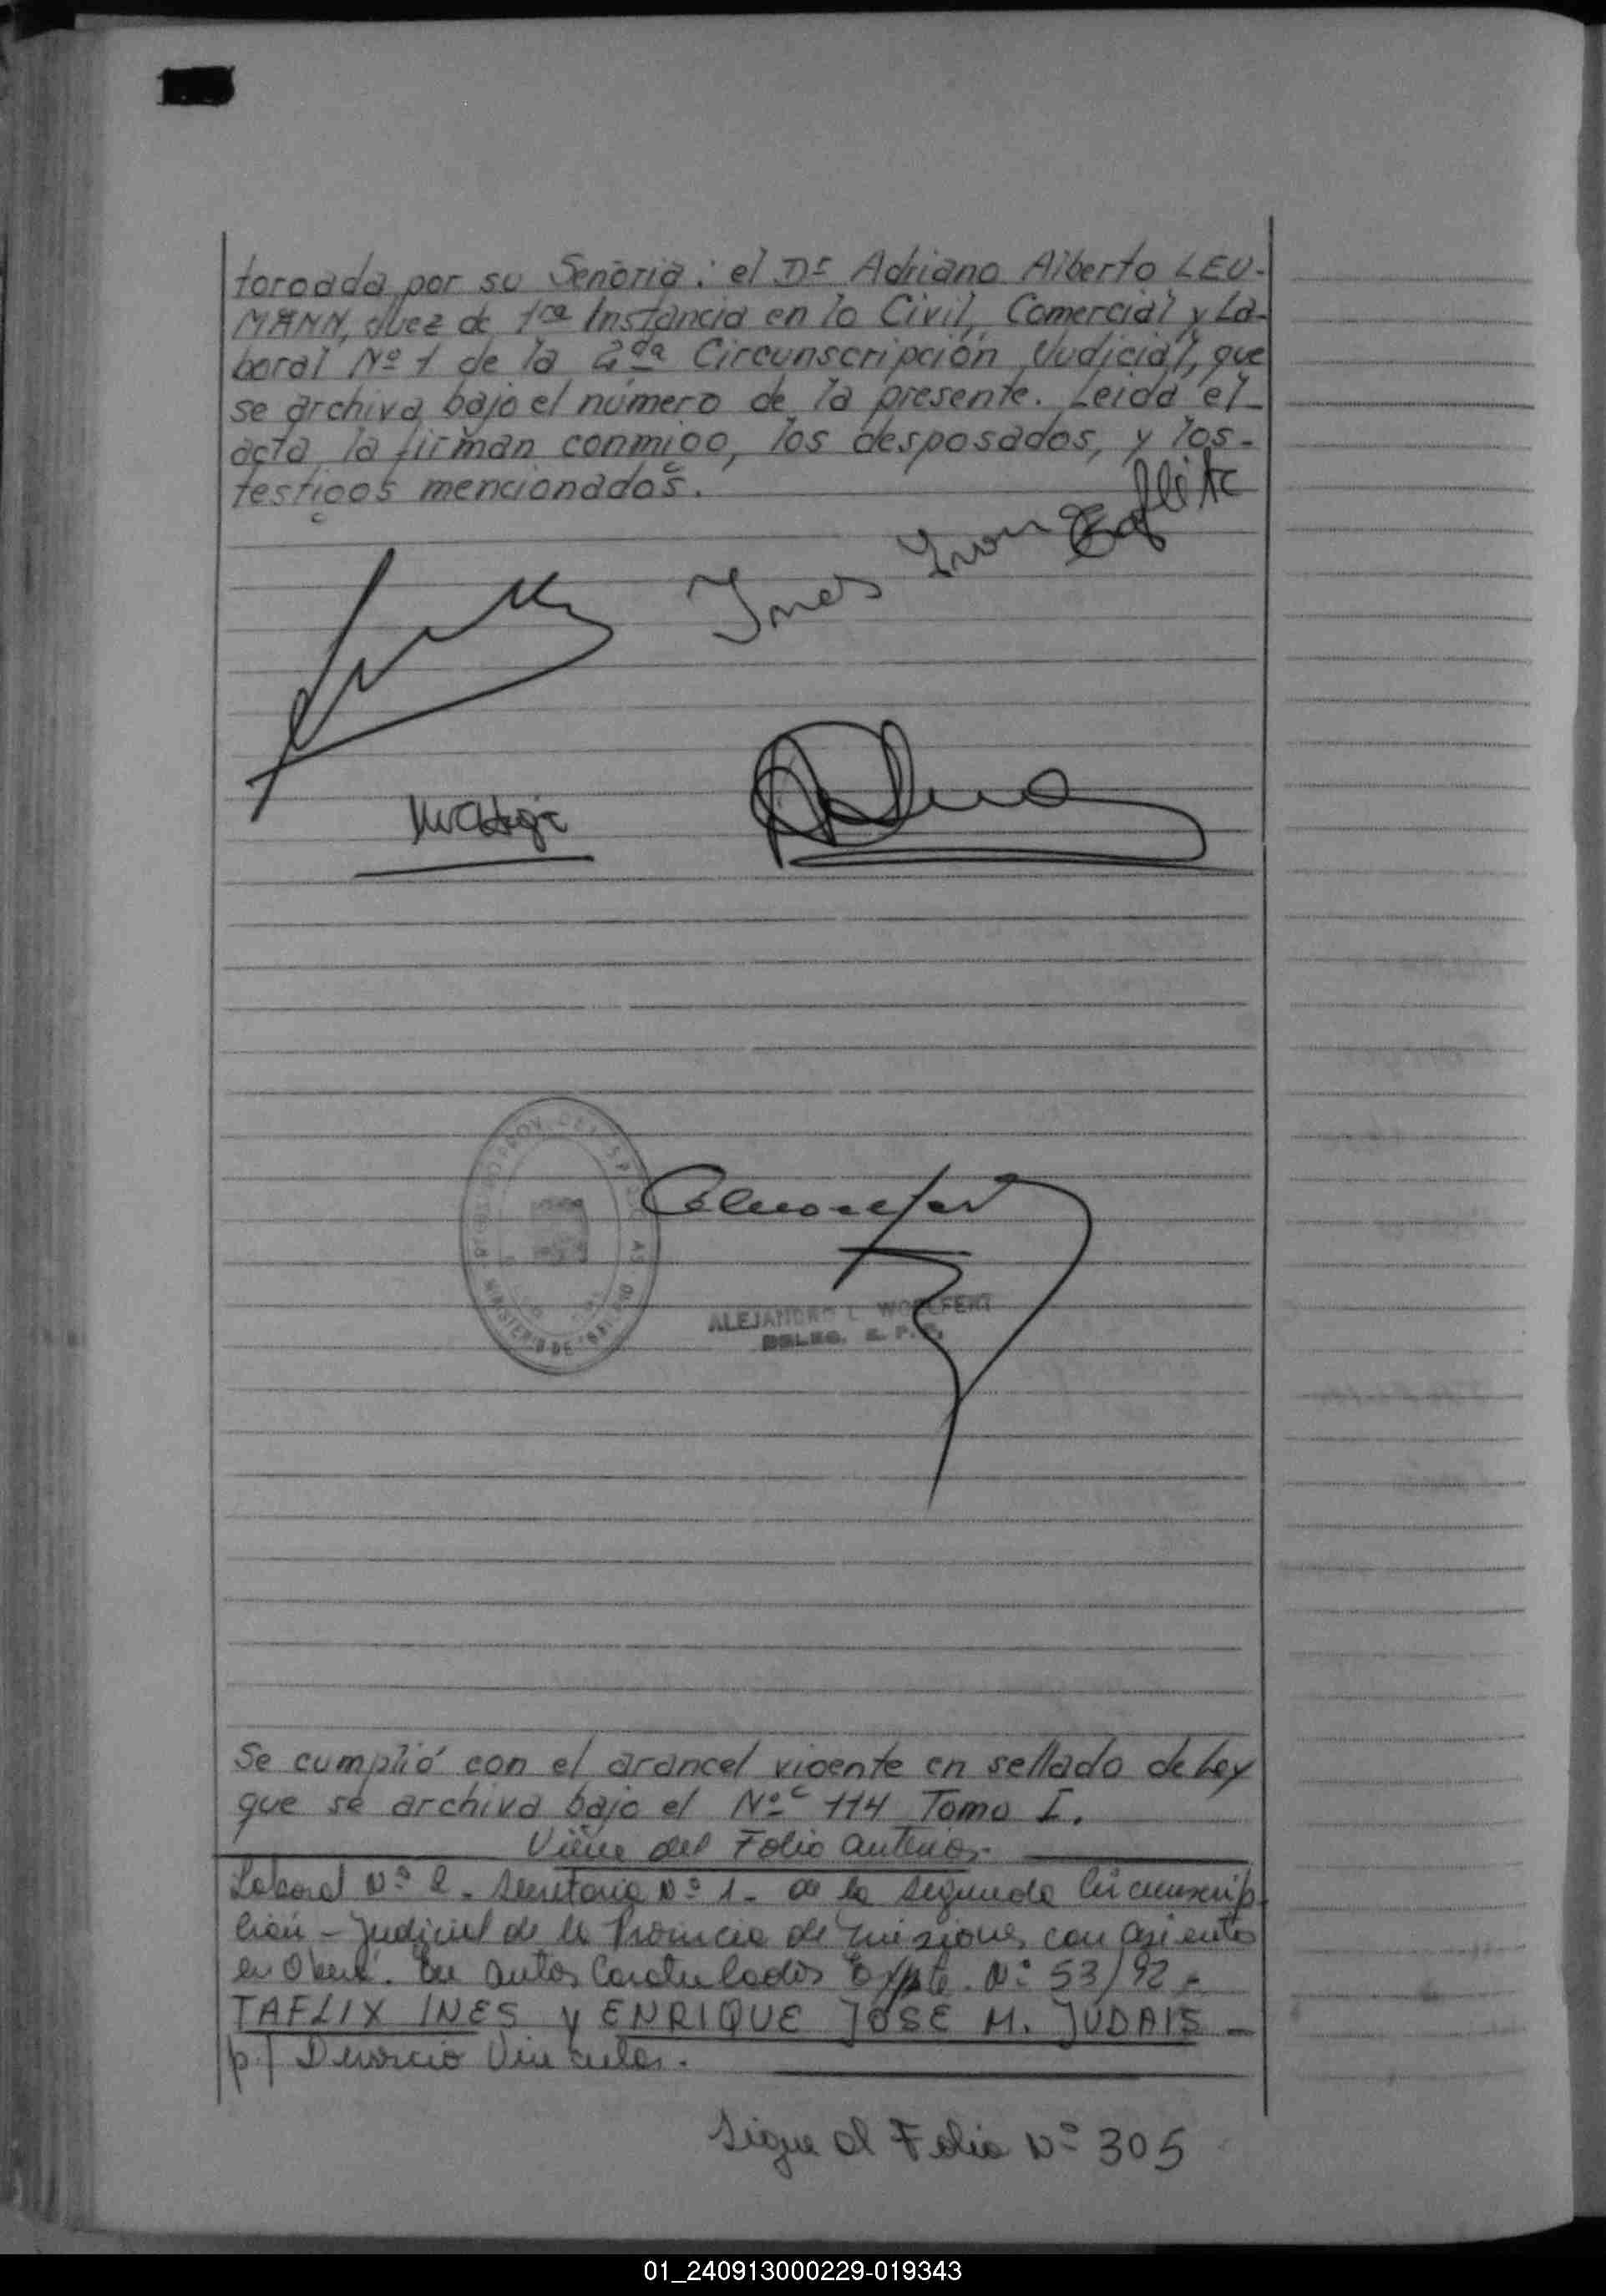 torgada por su Señoria: el Dr Adriano Alberto LEU-
MANN, Juez de 1ra Instancia en lo Civil, Comercial y La-
boral Nº 1 de la 2da Circunscripción Judicial, que
se archiva bajo el número de la presente. Leida el
acta, la firman conmigo, los desposados, y los-
testigos mencionados.
Ines Ivon Taflik
ALEJANDRO L. WOELFERT
DELEG. R. P. P.
Se cumplió con el arancel vigente en sellado de Ley
que se archiva bajo el Nº 114 Tomo I.
Viene del Folio anterior.
Laboral Nº 2. Secretaria Nº 1- de la Segunda Circunscrip-
ción - Judicial de la Provincia de Misiones, con asiento
en Oberá. En autos Caratulados Expte. Nº 53/92 -
TAFLIX INES y ENRIQUE JOSE M. JUDAIS -
p/ Divorcio Vincular.
Sigue al Folio Nº 305
01_240913000229-019343